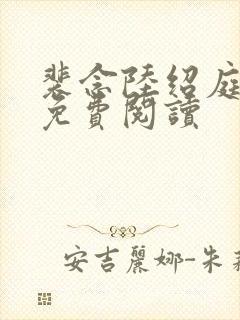 裴念陸紹庭
免費閱讀
安吉麗娜-朱莉